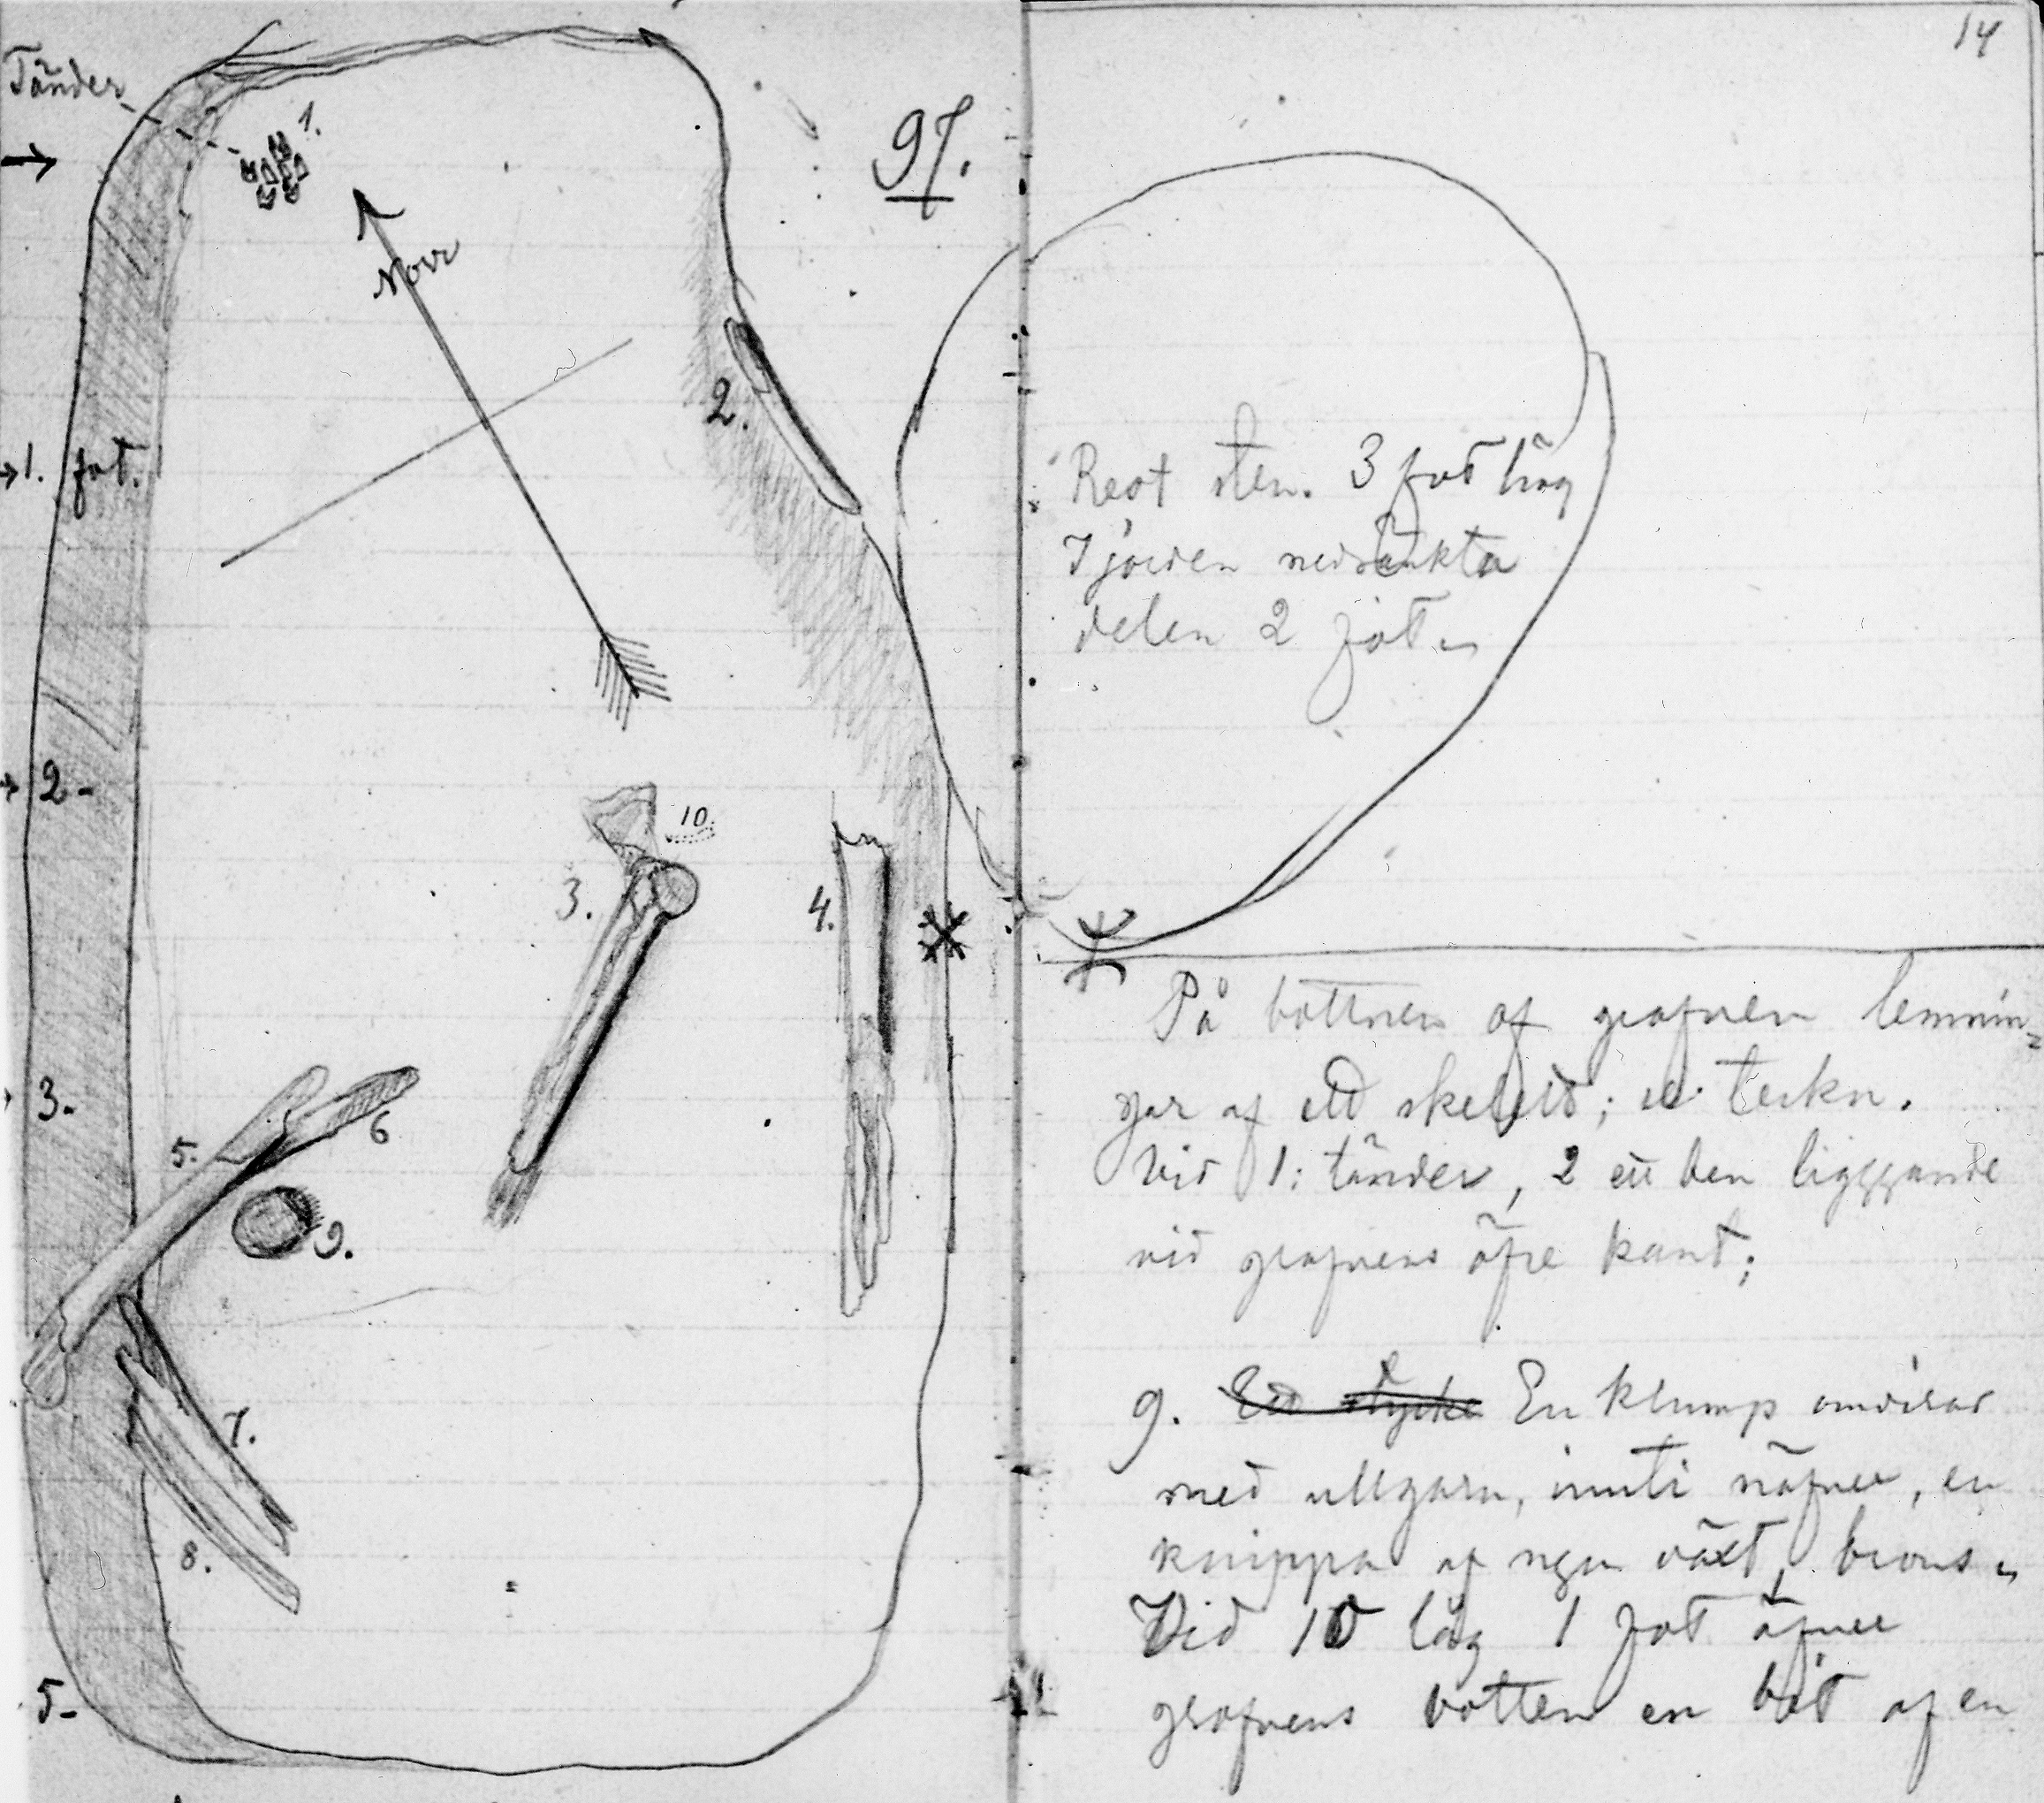 Tänder
1.
97.
Norr
2.
1. fot.
2-
10.
3.
4.
3-
5.
6
9.
7.
8.
5-
14
Rest sten. 3 fot hög
I jorden nedsänkta
delen 2 fot.
På bottnen af grafven lemnin-
gar af ett skelett; se teckn.
Vid 1: tänder, 2 ett ben liggande
vid grafvens öfre kant;
9. Ett stycke En klump omvirad
med ullgarn, inuti näfver, en
knippa af ngn växt, brons.
Vid 10 låg 1 fot öfver
grafvens botten en bit af en